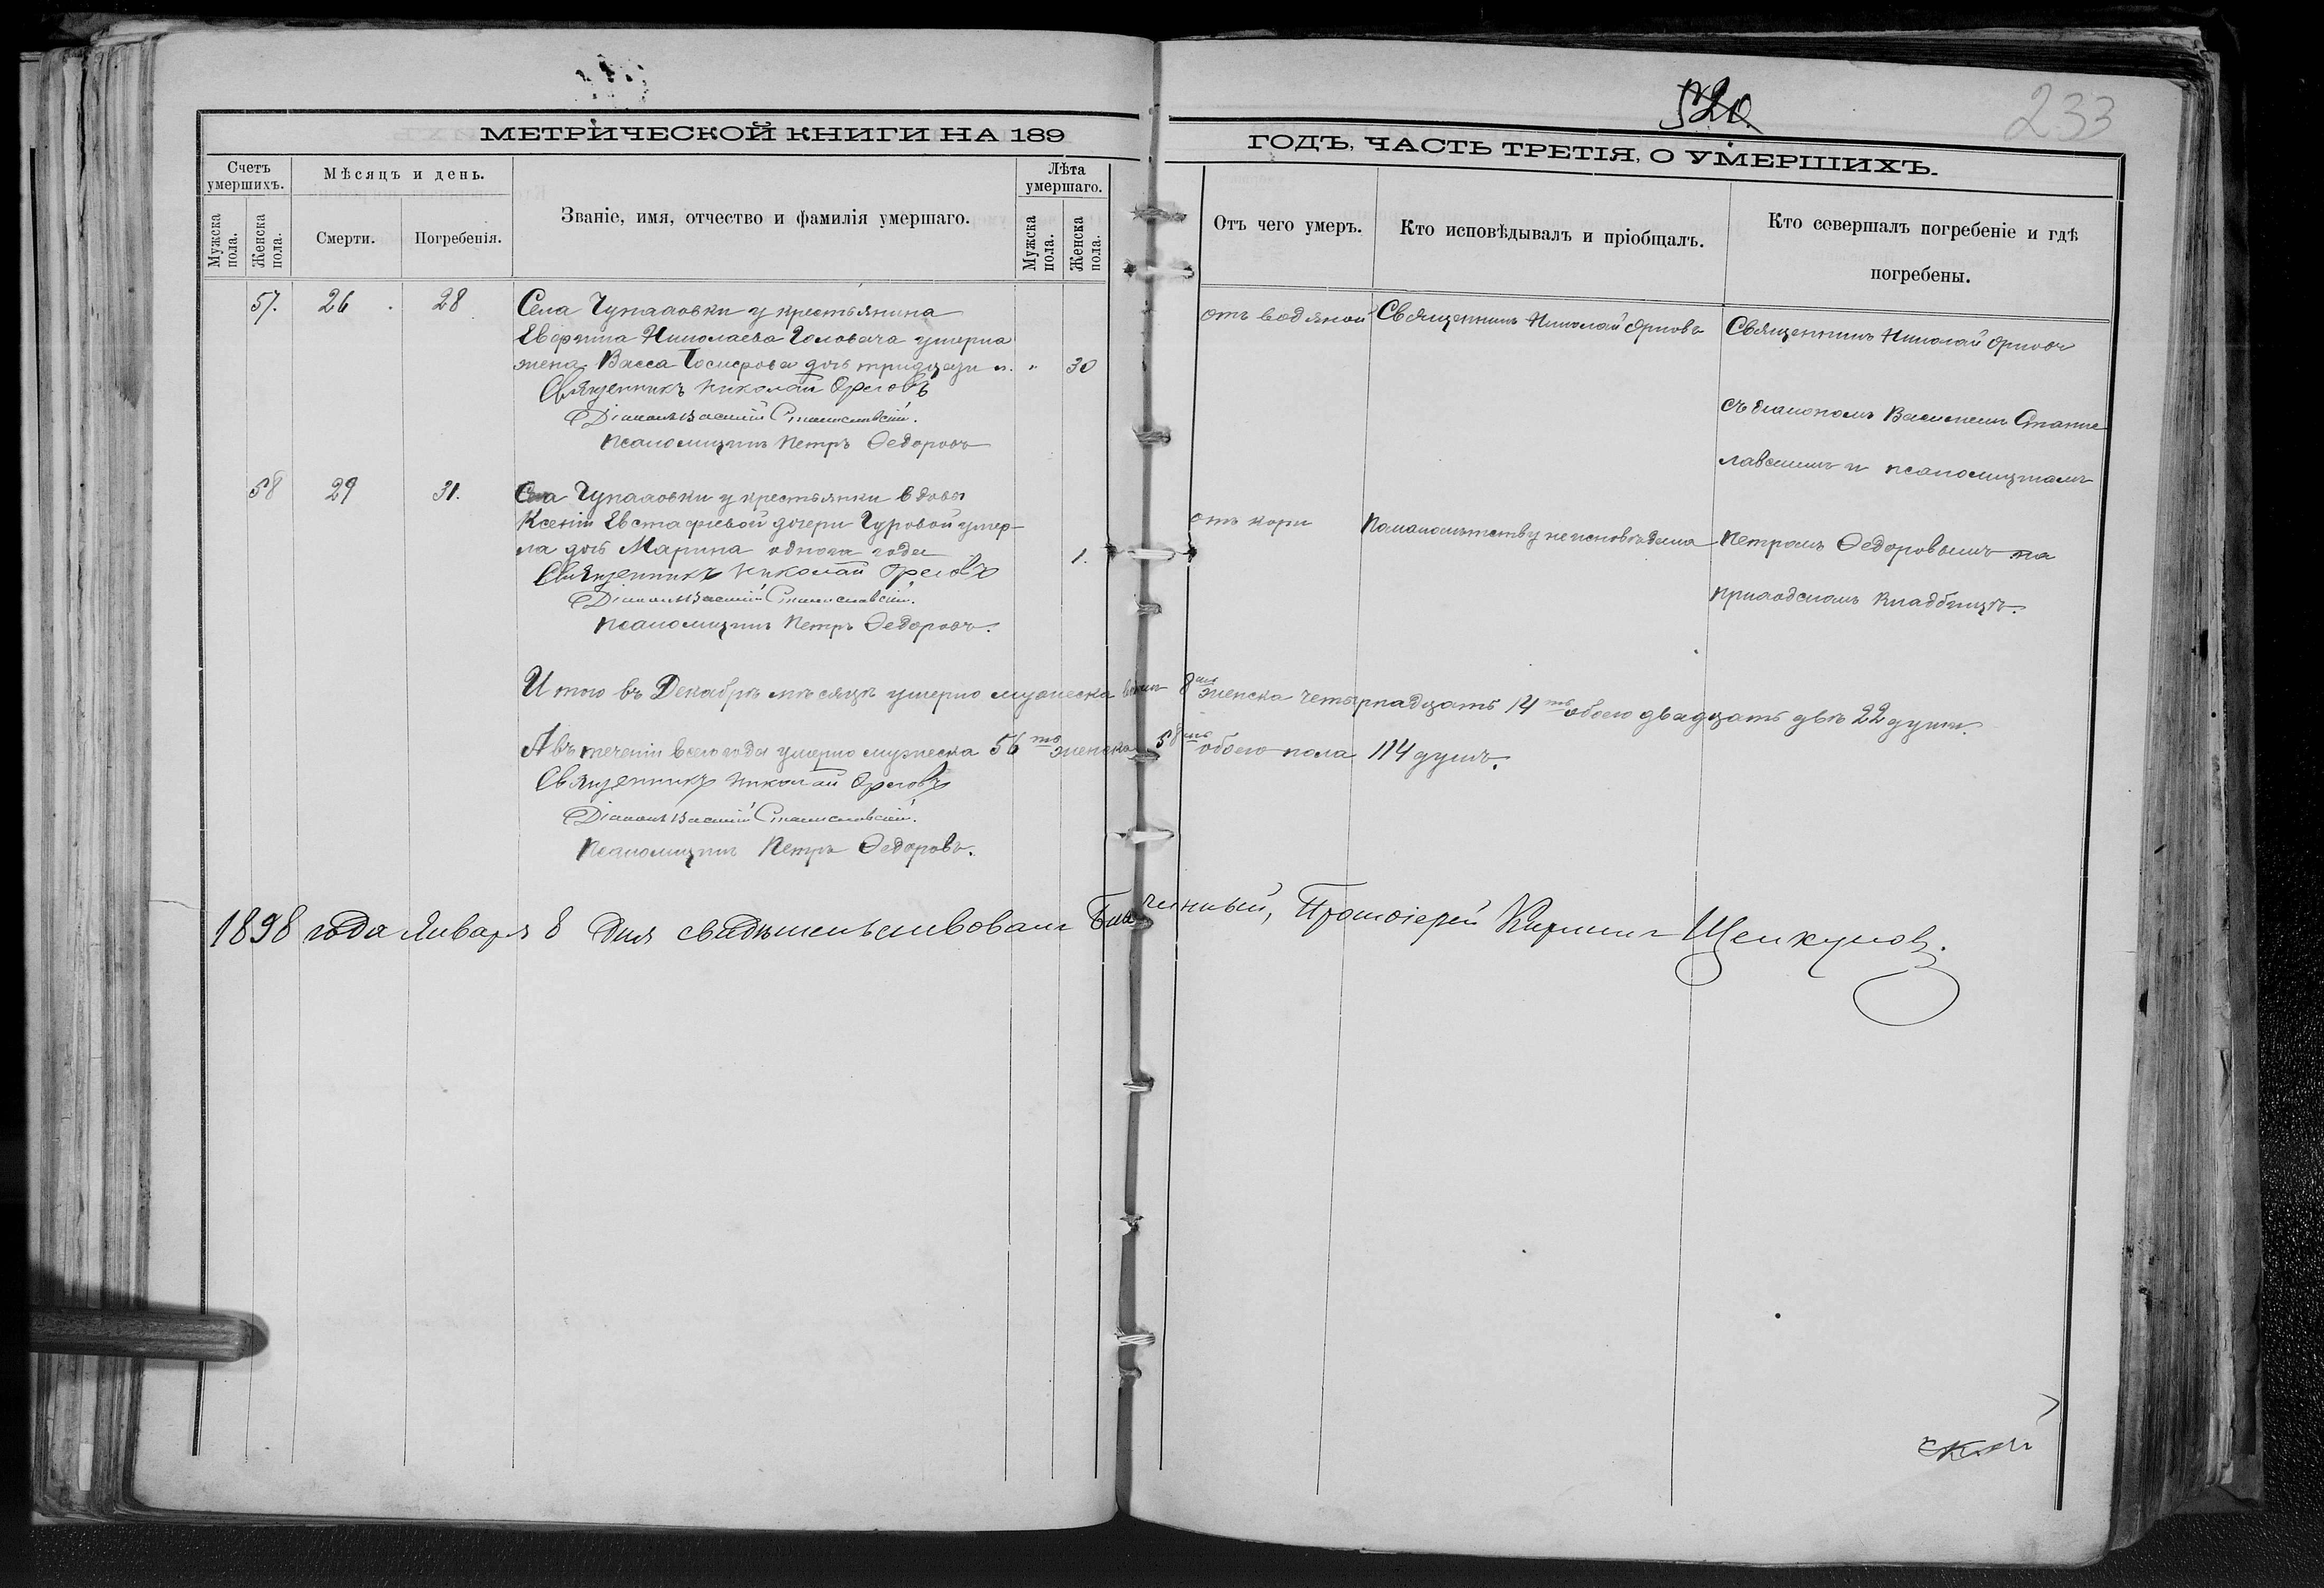 520
233
МЕТРИЧЕСКОЙ КНИГИ НА 189
ГОДЪ, ЧАСТЬ ТРЕТІЯ, О УМЕРШИХЪ.
Счетъ умершихъ.
Мѣсяцъ и день.
Званіе, имя, отчество и фамилія умершаго.
Лѣта умершаго.
Мужска пола.
Женска пола.
Смерти.
Погребенія.
Мужска пола.
Женска пола.
Отъ чего умеръ.
Кто исповѣдывалъ и пріобщалъ.
Кто совершалъ погребеніе и гдѣ погребены.
57. 26 28 Села Чупаховки у крестьянина
Николаева Головача умерла
жена Васса дочь тридцати л. " 30
Священникъ Николай Орловъ
Діаконъ Василій Станиславскій.
Псаломщикъ Петръ Ѳедоровъ
отъ водяной
Священникъ Николай Орловъ
Священникъ Николай Орловъ
съ діакономъ Василіемъ Станис
лавскимъ и псаломщикомъ
Петромъ Ѳедоровымъ на
приходскомъ кладбищѣ.
58 29 31. Села Чупаховки у крестьянки вдовы
Ксеніи Евстафіевой дочери Гуровой умер-
ла дочь Марина одного года 1.
Священникъ Николай Орловъ
Діаконъ Василій Станиславскій.
Псаломщикъ Петръ Ѳедоровъ.
отъ кори
По малолѣтству не исповѣдана
Итого въ Декабрѣ мѣсяцѣ умерло мужеска 8 женска четырнадцать 14 ть обоего двадцать двѣ 22 души.
А въ теченіи всего года умерло мужеска 56 ть женска 58 мь обоего пола 114 душъ.
Священникъ Николай Орловъ
Діаконъ Василій Станиславскій.
Псаломщикъ Петръ Ѳедоровъ.
1898 года Января 8 дня свидѣтельствовалъ Благочинный, Протоіерей Кириллъ Щелкуновъ.